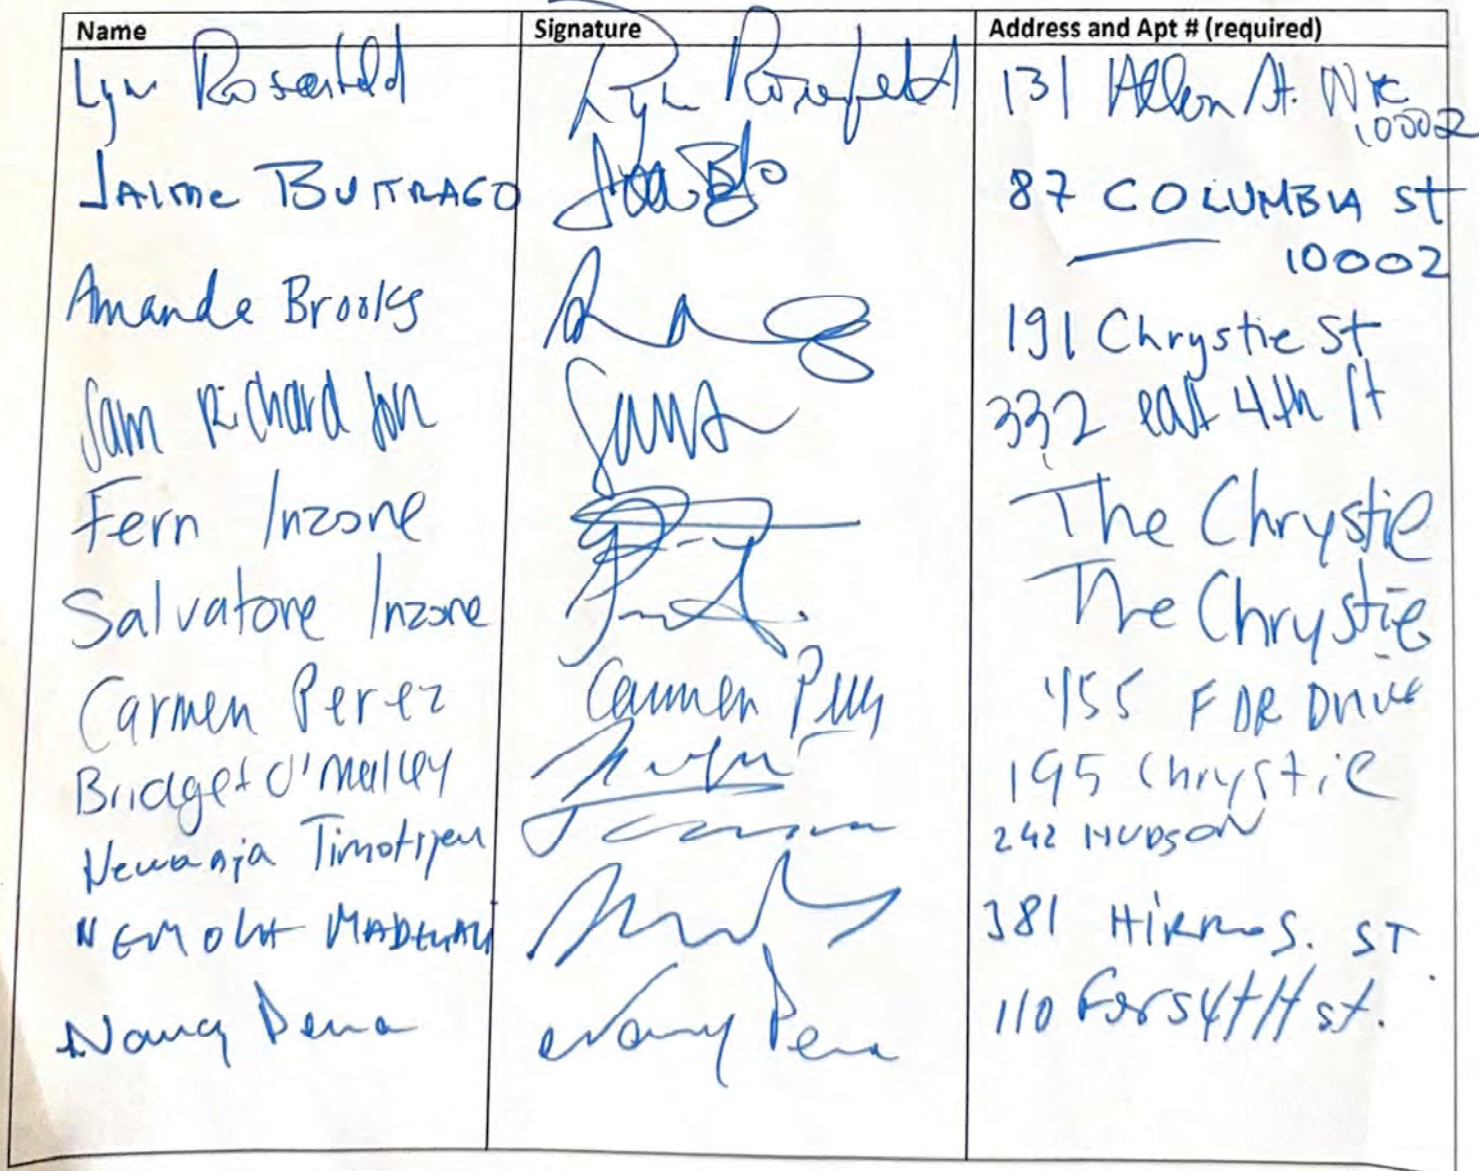 Name Signature Address and Apt # (required)
Lyn Rosenfeld Lyn Rosenfeld 131 Allen St. NYC
10002
JAIME BUITRAGO 87 COLUMBIA St
10002
Amanda Brooks 191 Chrystie St
Sam Richardson Sam 332 east 4th St
Fern Inzone The Chrystie
Salvatore Inzone The Chrystie
Carmen Perez Carmen Perez 455 FDR Drive
Bridget O'Malley 195 Chrystie
Timotijev 242 HUDSON
381 ST
Nancy Pena Nancy Pena 110 ForsytH st.